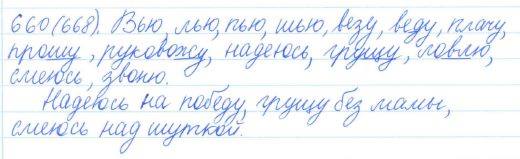 660(668). Вью, лью, пью, шью, везу, веду, плачу,
прошу, руковожу, надеюсь, грущу, ловлю,
смеюсь, звоню.
Надеюсь на победу, грущу без мамы,
смеюсь над шуткой.